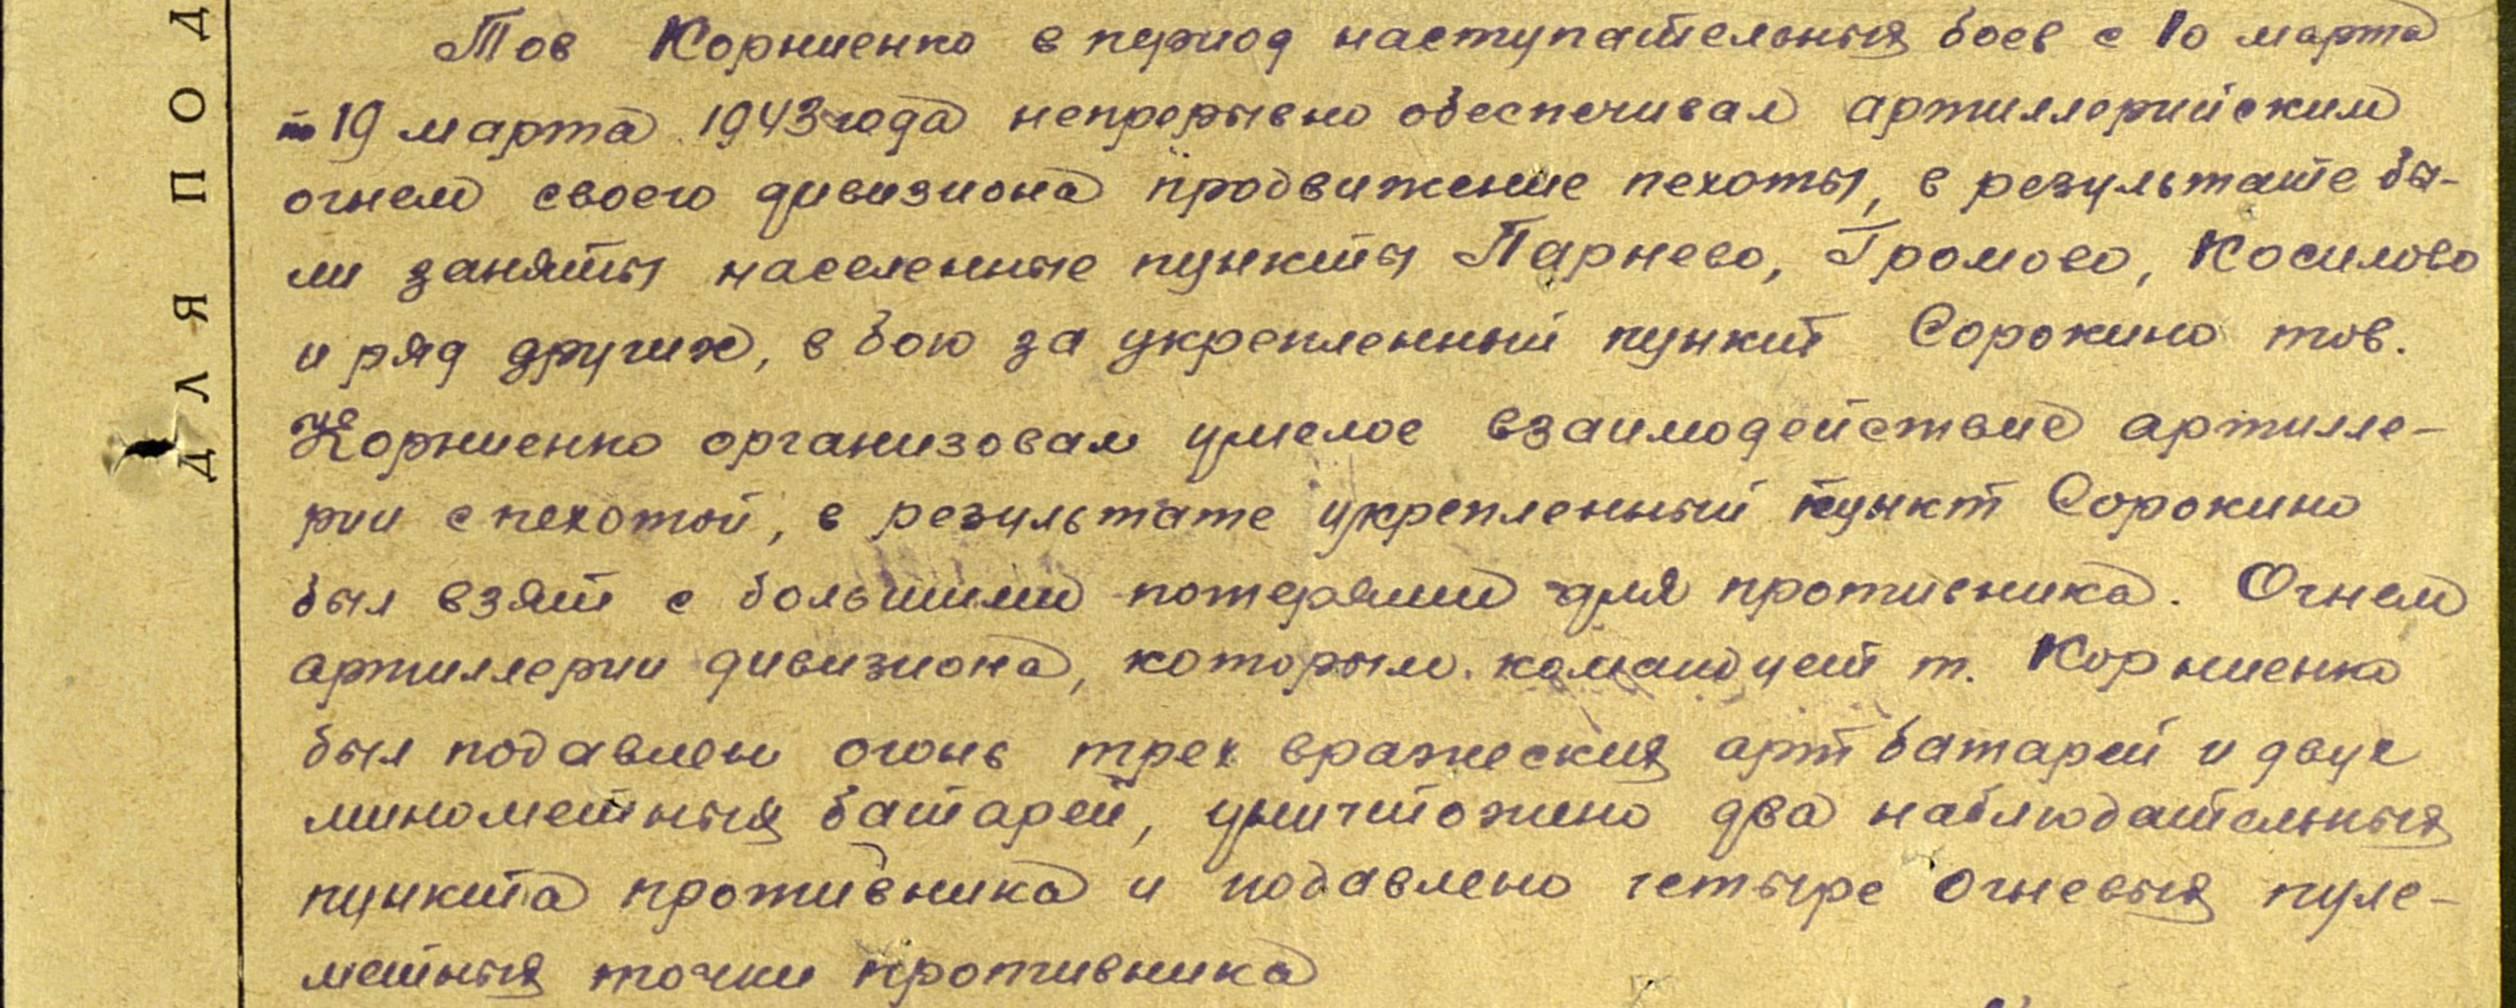 ДЛЯ ПОД
Тов Корниенко в период наступательных боев с 10 марта
по 19 марта 1943 года непрерывно обеспечивал артиллерийским
огнем своего дивизиона продвижение пехоты, в результате бы-
ли заняты населенные пункты Парнево, Громово, Косилово
и ряд других, в бою за укрепленный пункт Сорокино тов.
Корниенко организовал умелое взаимодействие артилле-
рии с пехотой, в результате укрепленный пункт Сорокино
был взят с большими потерями для противника. Огнем
артиллерии дивизиона, которым командует т. Корниенко
был подавлен огонь трех вражеских арт батарей и двух
минометных батарей, уничтожено два наблюдательных
пункта противника и подавлено четыре огневых пуле-
метных точки противника